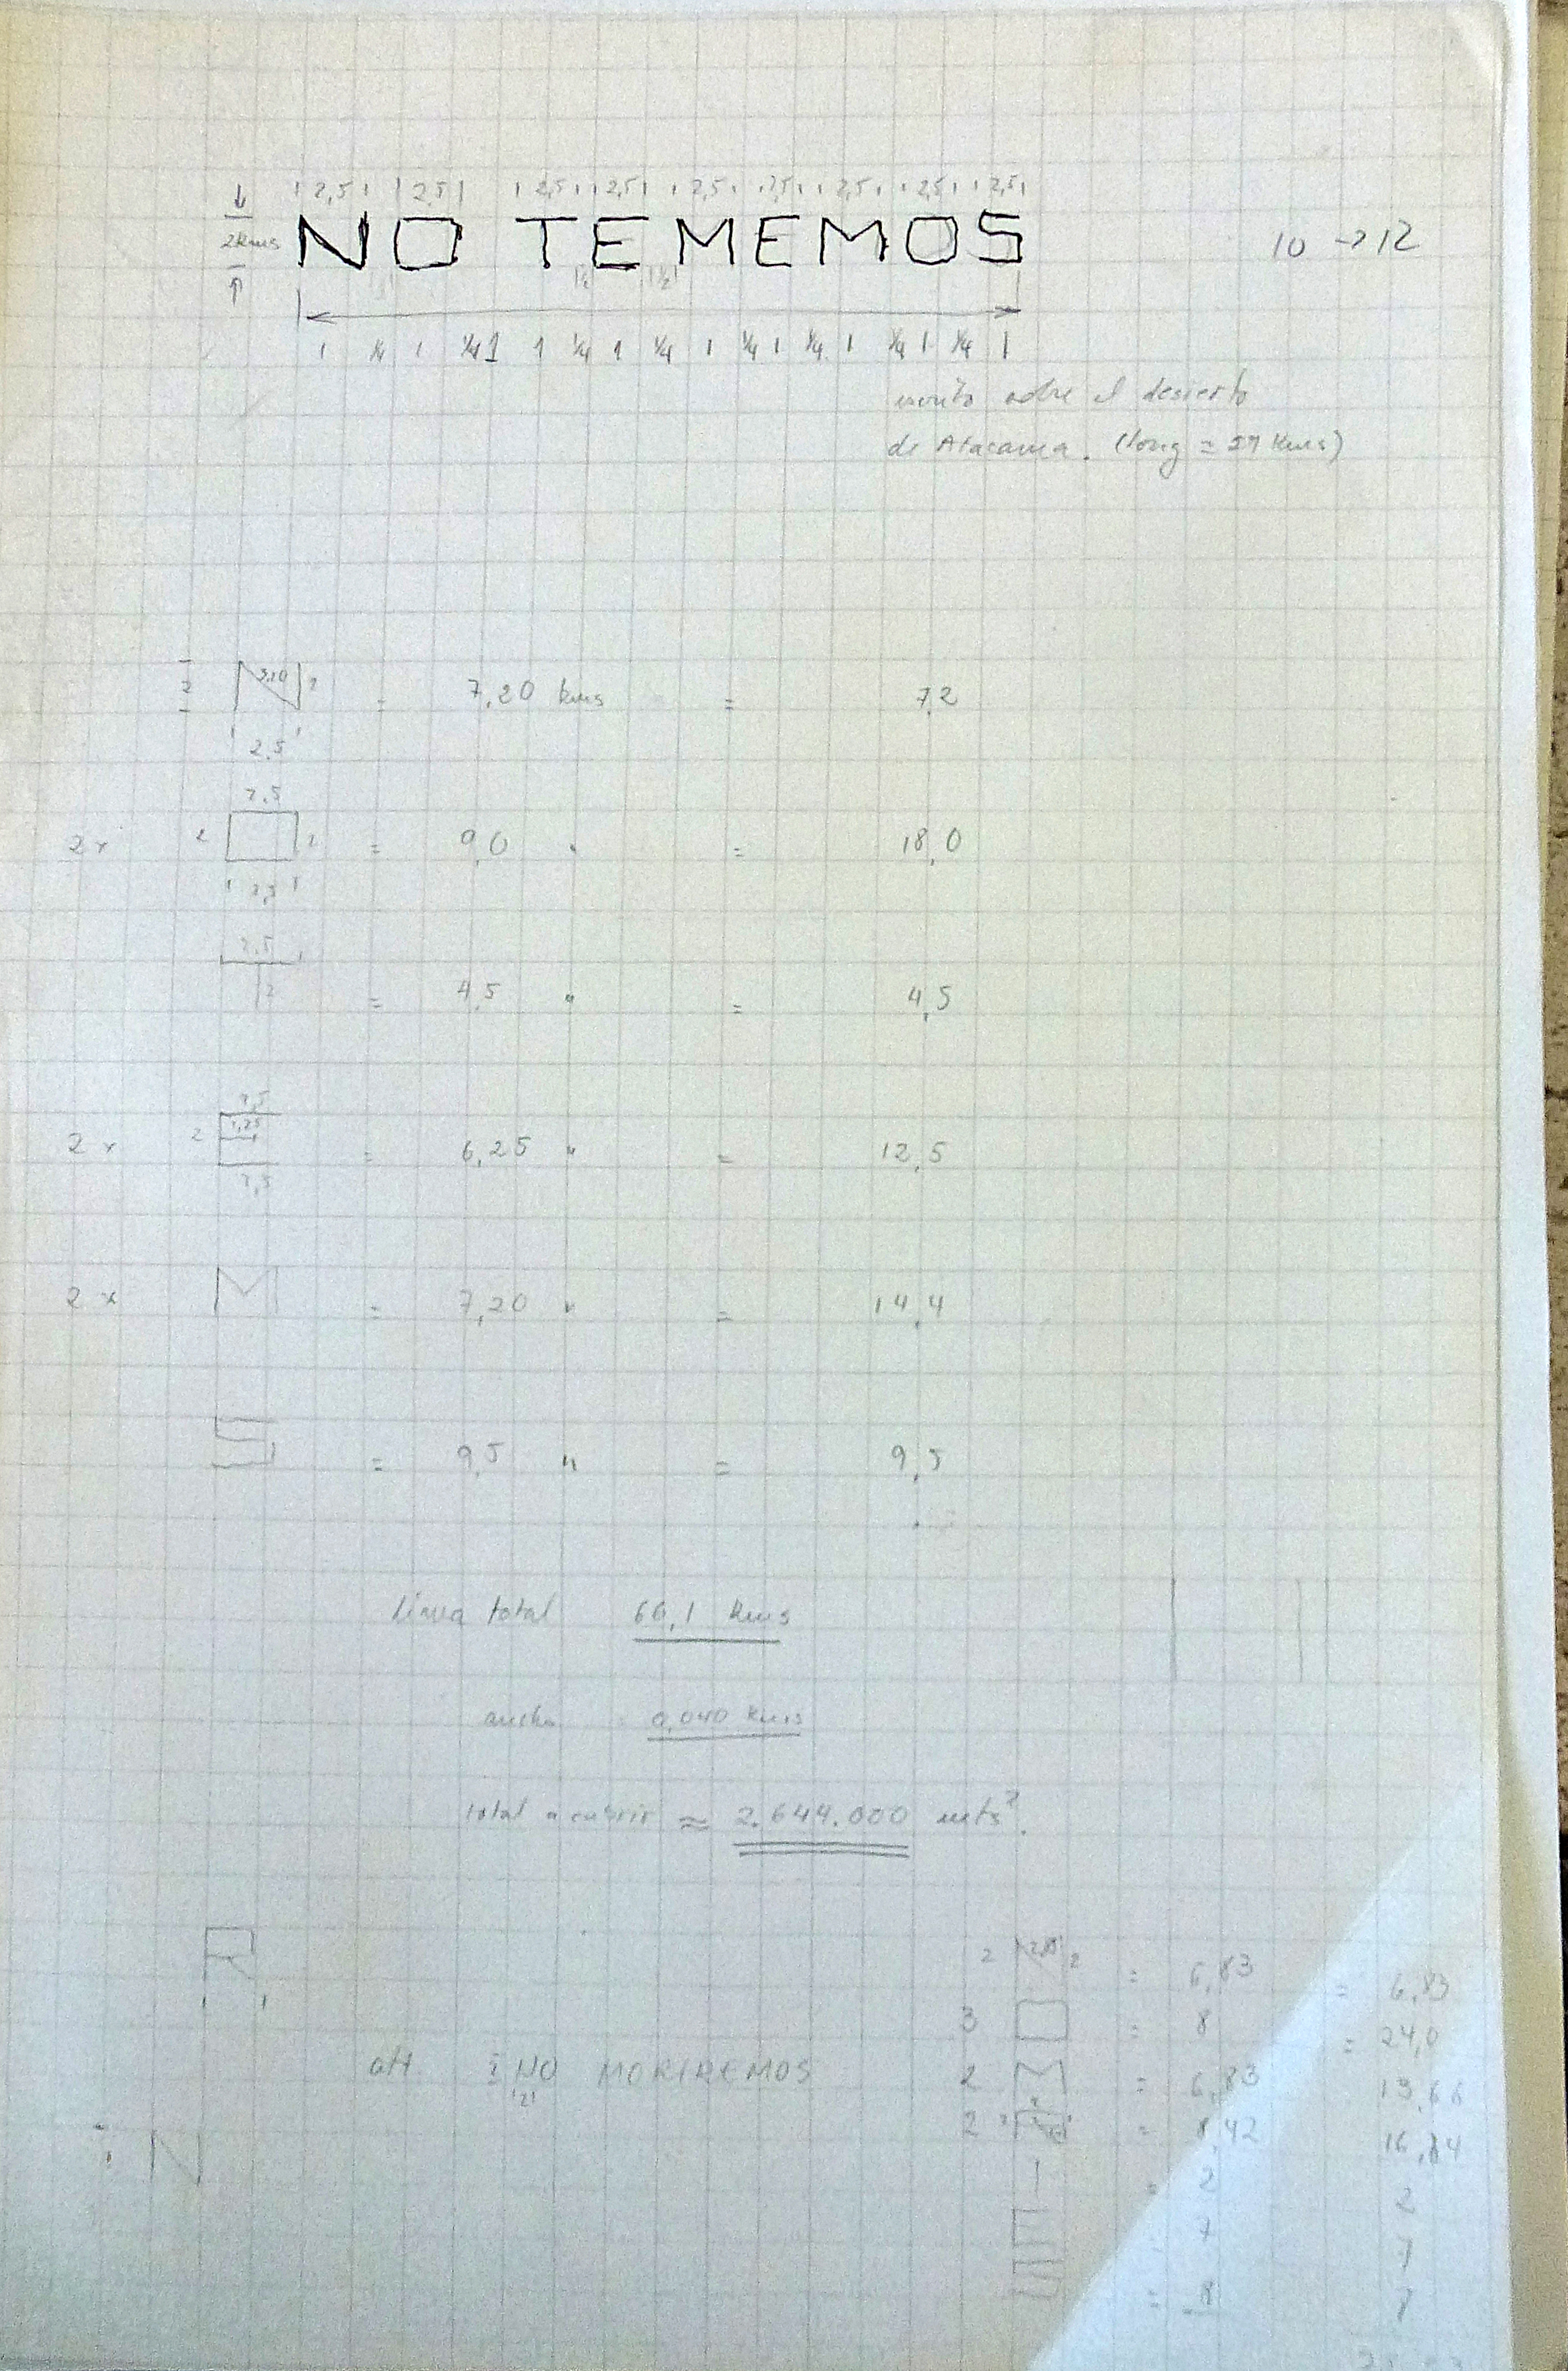 2,5 2,5 2,5 2,5 2,5 2,5 2,5 2,5 2,5
2 kms NO TEMEMOS 10 → 12
1/2 1/2
1 1/4 1 1/4 1 1 1/4 1 1/4 1 1/4 1 1/4 1 1/4 1 1/4 1
escrito sobre el desierto
de Atacama. (long = 27 kms)
2 N 3,20 2 = 7,20 kms = 7,2
2,5
2,5
2 x 2 2 = 9,0 " = 18,0
2,5
2,5
T 2 = 4,5 " = 4,5
2 x 2 E 1,25 = 6,25 " = 12,5
2 x M = 7,20 " = 14,4
S = 9,5 " = 9,5
linea total 66,1 kms
ancho 0,040 kms
total a cubrir ≈ 2.644.000 mts².
R
alt. NO MORIREMOS
N
2 N 2 = 6,83 = 6,83
3 O = 8 = 24,0
2 M = 6,83 13,66
2 R = 8,42 16,84
I = 2 2
E 7 7
S = 8